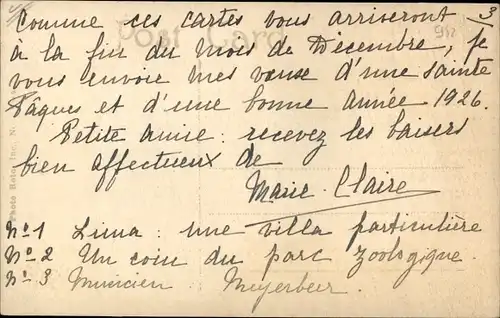 Comme ces cartes vous arriveront
à la fin du mois de Décembre, je
vous envoie mes vœux d'une sainte
Pâques et d'une bonne année 1926.
Petite amie : recevez les baisers
bien affectueux de
Marie-Claire
Nº 1 Lima : une villa particulière
Nº 2 Un coin du parc zoologique.
Nº 3 Musicien Meyerbeer.
3
Post Card
Photo Roto, Inc. N.